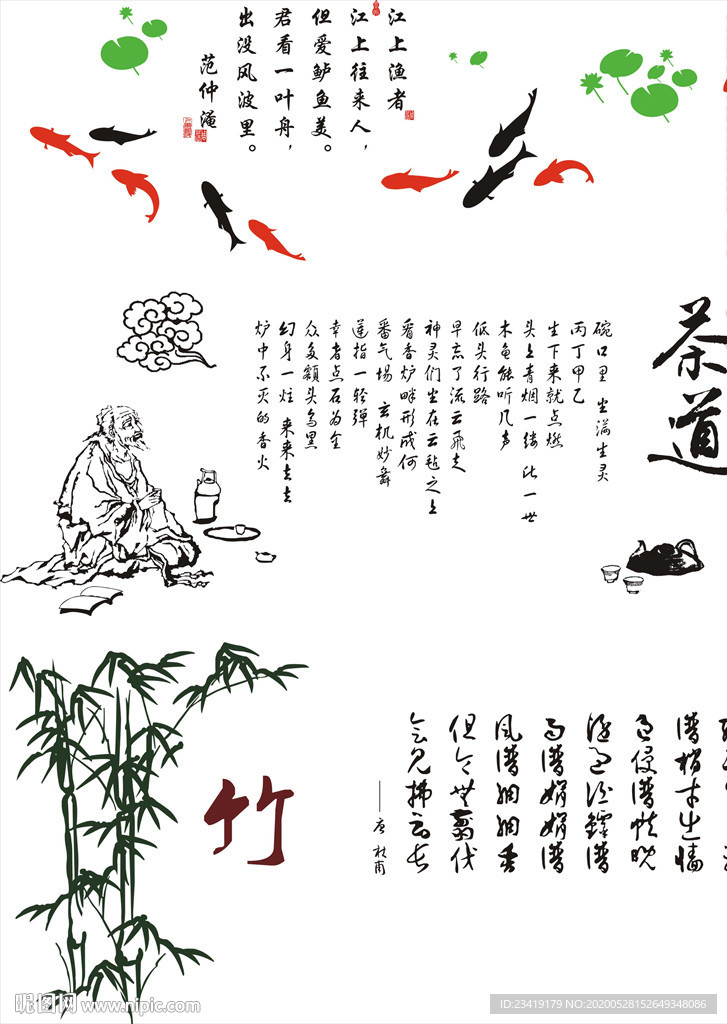 江上渔者
江上往来人，
但爱鲈鱼美。
君看一叶舟，
出没风波里。
范仲淹
茶道
碗口里 坐满生灵
丙丁甲乙
坐下来就点燃
头上青烟一缕 比一世
木鱼能听几声
低头行路
早忘了流云飞走
神灵们坐在云毡之上
看香炉畔形成何
番气场 玄机妙舞
莲指一轻弹
幸者点石为金
众多额头乌黑
幻身一炷 来来去去
炉中不灭的香火
竹
谱梢才出墙
色侵谱帙晚
阴过酒罇谱
雨谱娟娟谱
风谱细细香
但令无翦伐
会见拂云长
——唐 杜甫
昵图网 www.nipic.com
ID:23419179 NO:20200528152649348086